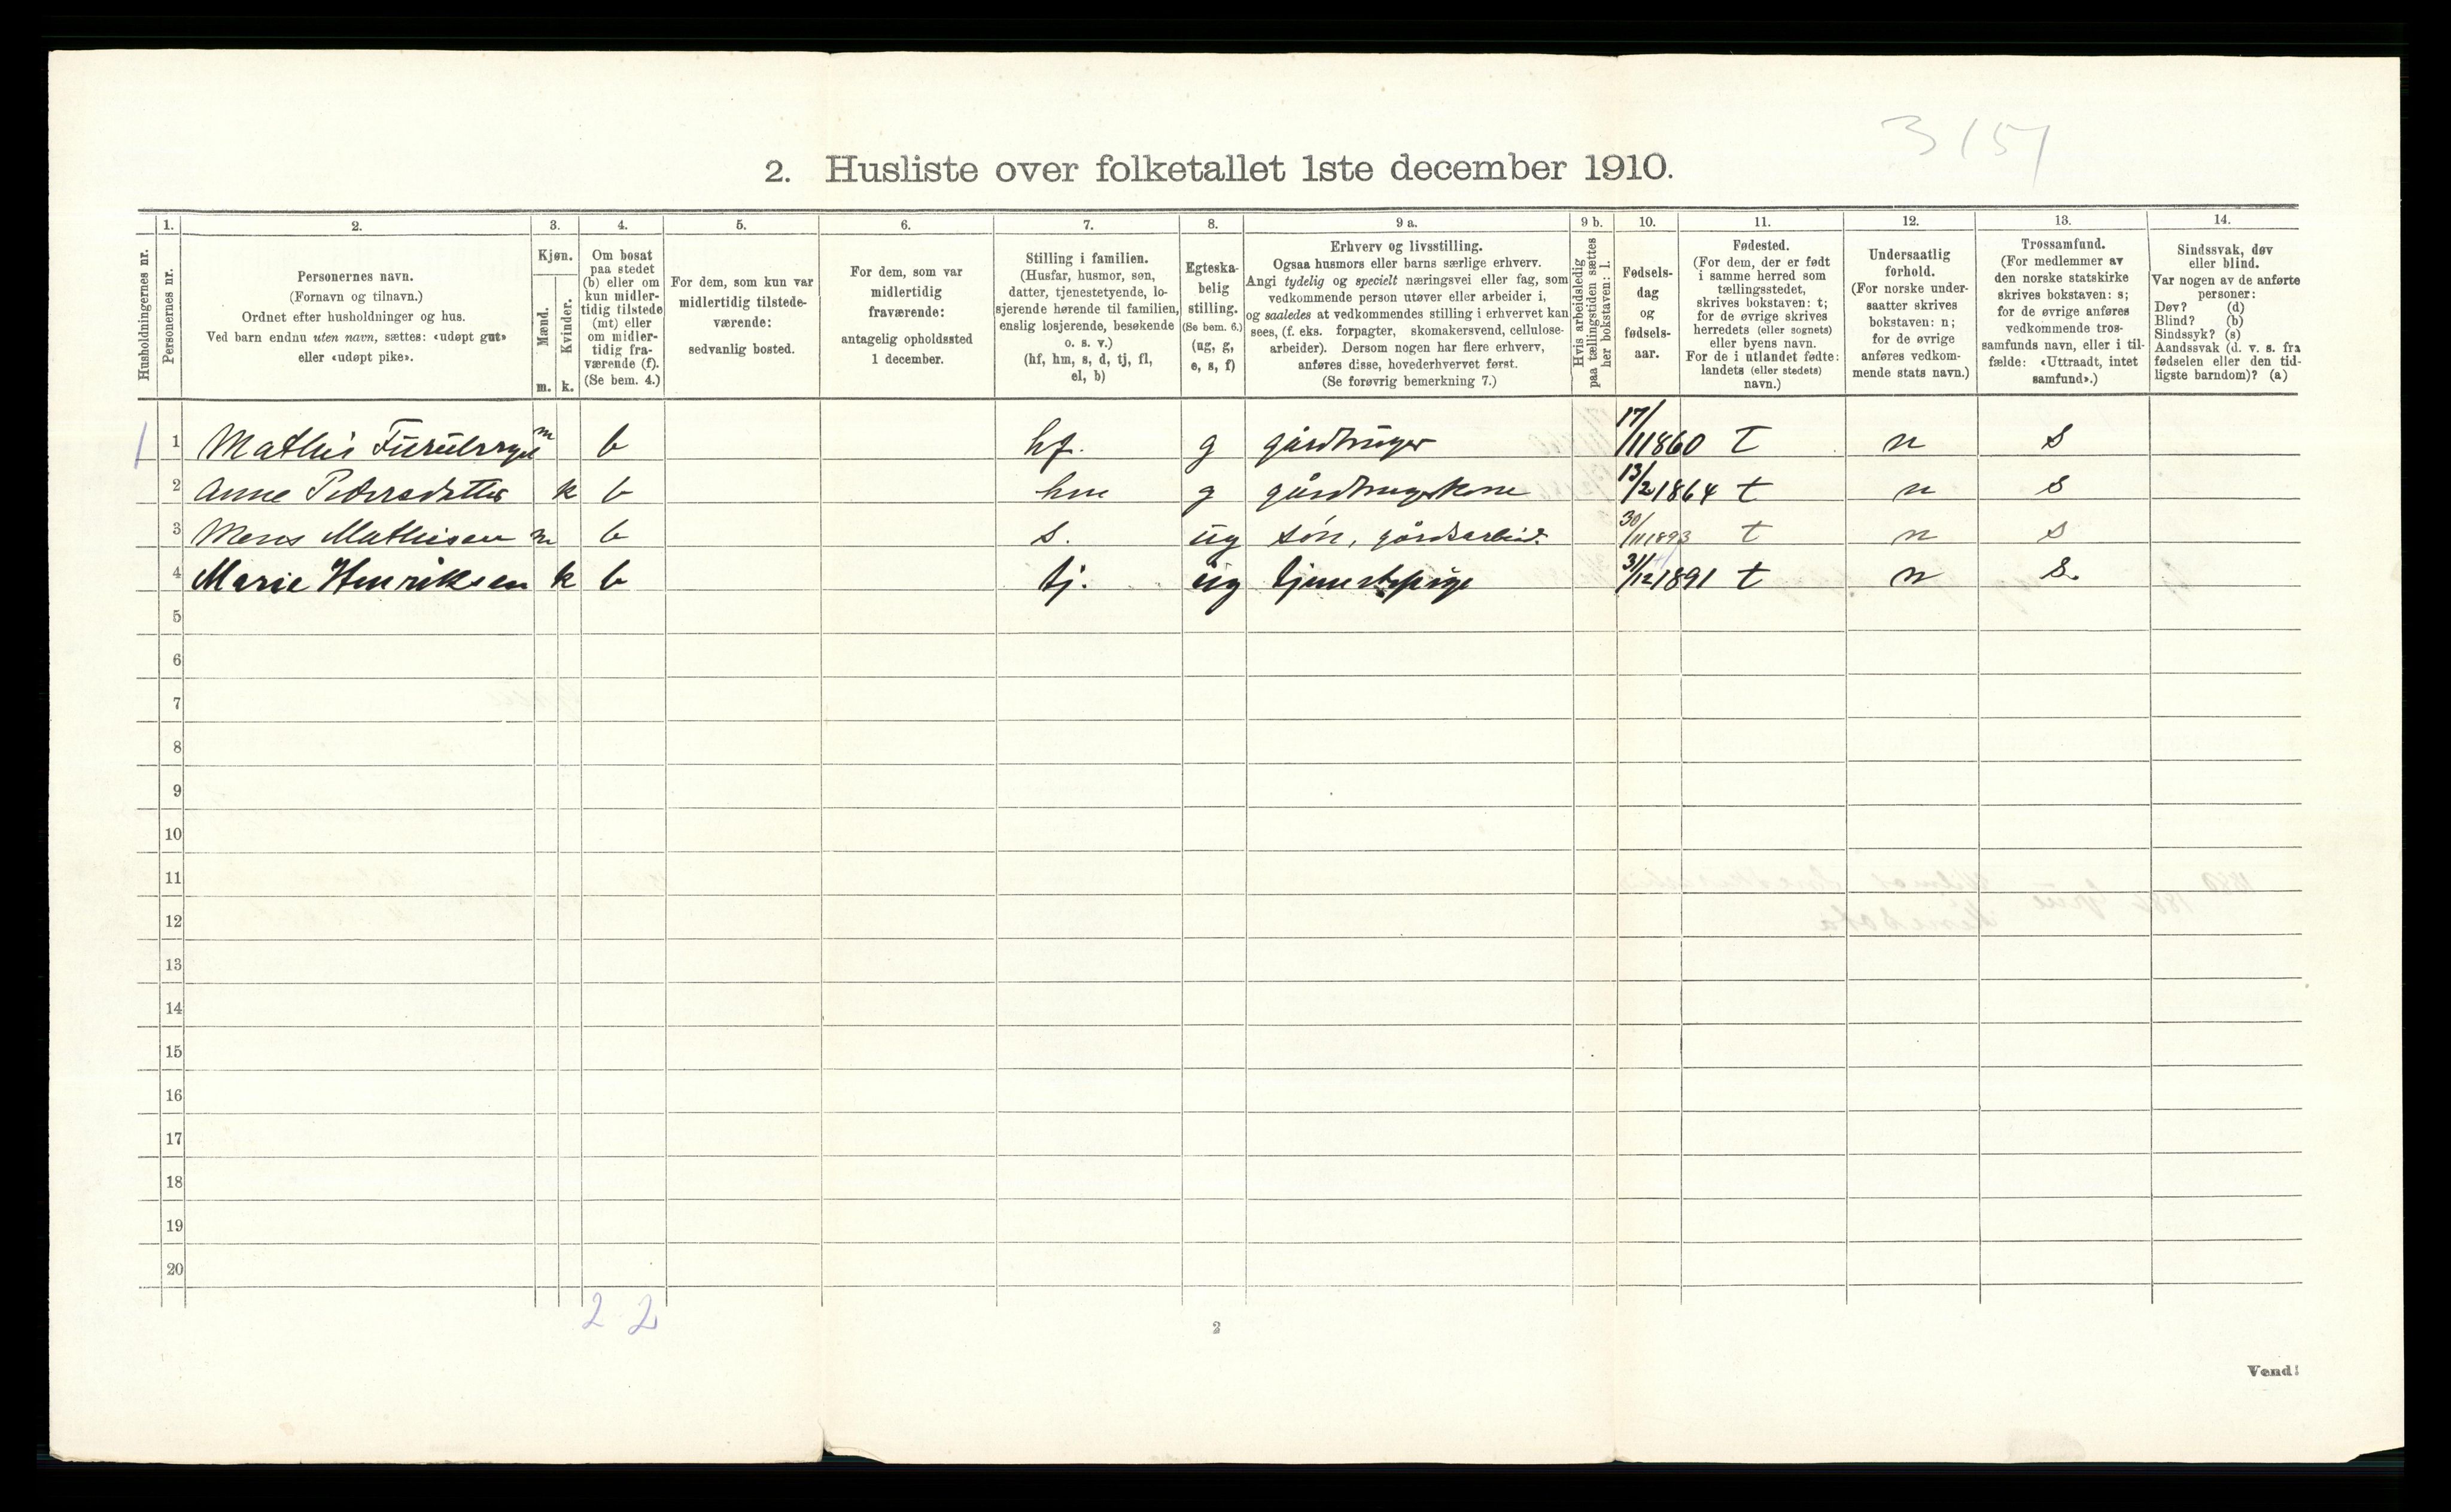 3 151
2. Husliste over folketallet 1ste december 1910.
Husholdningernes nr.
1.
Personernes nr.
2.
Personernes navn.
(Fornavn og tilnavn.)
Ordnet efter husholdninger og hus.
Ved barn endnu uten navn, sættes: «udøpt gut»
eller «udøpt pike».
3.
Kjøn.
Mænd.
m.
Kvinder.
k.
4.
Om bosat
paa stedet
(b) eller om
kun midler-
tidig tilstede
(mt) eller
om midler-
tidig fra-
værende (f).
(Se bem. 4.)
5.
For dem, som kun var
midlertidig tilstede-
værende:
sedvanlig bosted.
6.
For dem, som var
midlertidig
fraværende:
antagelig opholdssted
1 december.
7.
Stilling i familien.
(Husfar, husmor, søn,
datter, tjenestetyende, lo-
sjerende hørende til familien,
enslig losjerende, besøkende
o. s. v.)
(hf, hm, s, d, tj, fl,
el, b)
8.
Egteska-
belig
stilling.
(Se bem. 6.)
(ug, g,
e, s, f)
9 a.
Erhverv og livsstilling.
Ogsaa husmors eller barns særlige erhverv.
Angi tydelig og specielt næringsvei eller fag, som
vedkommende person utøver eller arbeider i,
og saaledes at vedkommendes stilling i erhvervet kan
sees, (f. eks. forpagter, skomakersvend, cellulose-
arbeider). Dersom nogen har flere erhverv,
anføres disse, hovederhvervet først.
(Se forøvrig bemerkning 7.)
9 b.
Hvis arbeidsledig
paa tællingstiden sættes
her bokstaven: l.
10.
Fødsels-
dag
og
fødsels-
aar.
11.
Fødested.
(For dem, der er født
i samme herred som
tællingsstedet,
skrives bokstaven: t;
for de øvrige skrives
herredets (eller sognets)
eller byens navn.
For de i utlandet fødte:
landets (eller stedets)
navn.)
12.
Undersaatlig
forhold.
(For norske under-
saatter skrives
bokstaven: n;
for de øvrige
anføres vedkom-
mende stats navn.)
13.
Trossamfund.
(For medlemmer av
den norske statskirke
skrives bokstaven: s;
for de øvrige anføres
vedkommende tros-
samfunds navn, eller i til-
fælde: «Uttraadt, intet
samfund».)
14.
Sindssvak, døv
eller blind.
Var nogen av de anførte
personer:
Døv? (d)
Blind? (b)
Sindssyk? (s)
Aandssvak (d. v. s. fra
fødselen eller den tid-
ligste barndom)? (a)
1 1 Mathis m b hf. g gårdbruger 17/11 1860 T n s
2 Anne Pedersdatter k b hm g gårdbrugerkone 13/2 1864 t n s
3 Mons Mathisen m b s. ug søn, gårdsarbeid. 30/11 1893 t n s
4 Marie Henriksen k b tj. ug tjenestepige 31/12 1891 t n s.
5
6
7
8
9
10
11
12
13
14
15
16
17
18
19
20
2 2
2
Vend!